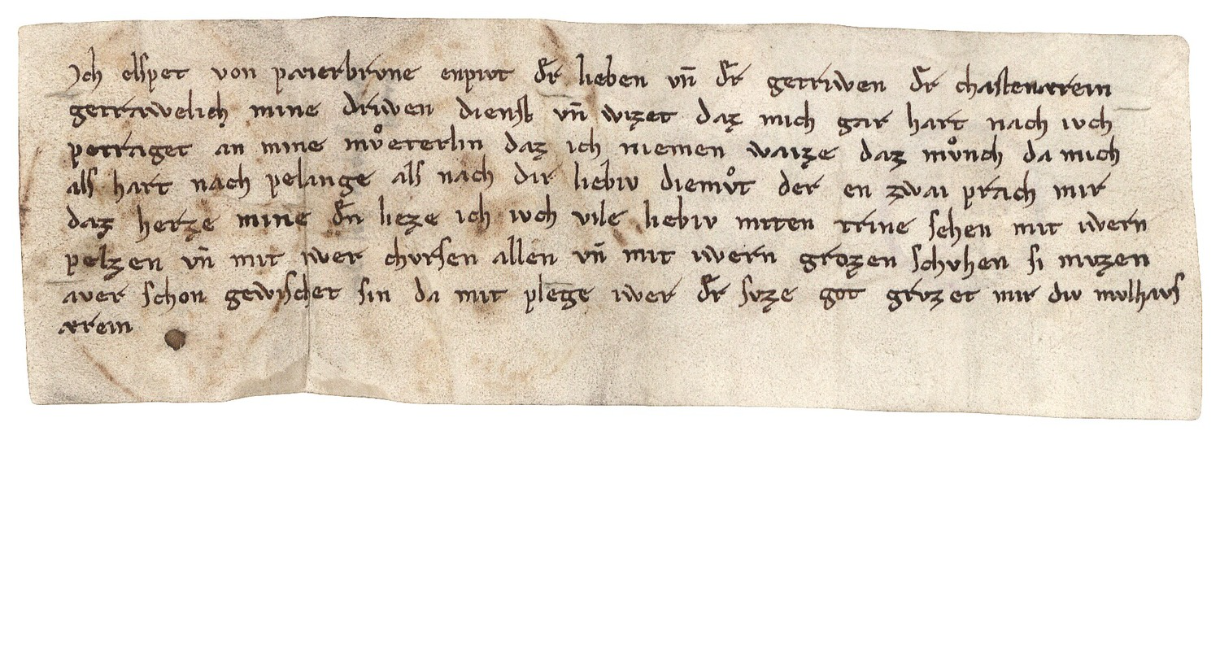 Ich elspet von paierbrvne enpivt d̄r lieben vn̄ d̄r getriwen d̄r chastenarrein
getrawelich mine driwen dienst vn̄ wizet daz mich gar hart nach ivch
petraget an mine mvͦeterlin daz ich niemen waize daz mvͦnch da mich
als hart nach pelange als nach dir liebiv diemvͦt der en zwai prach mir
daz herze mine d̄n lieze ich ivch vile liebiv miten trine sehen mit iwern
pelzen vn̄ mit iwer chvrsen allen vn̄ mit iwern grozen schvhen si mvzen
aver schon gewischet sin da mit plege iwer d̄r svze got grvzet mir div mvlhavs
arrein